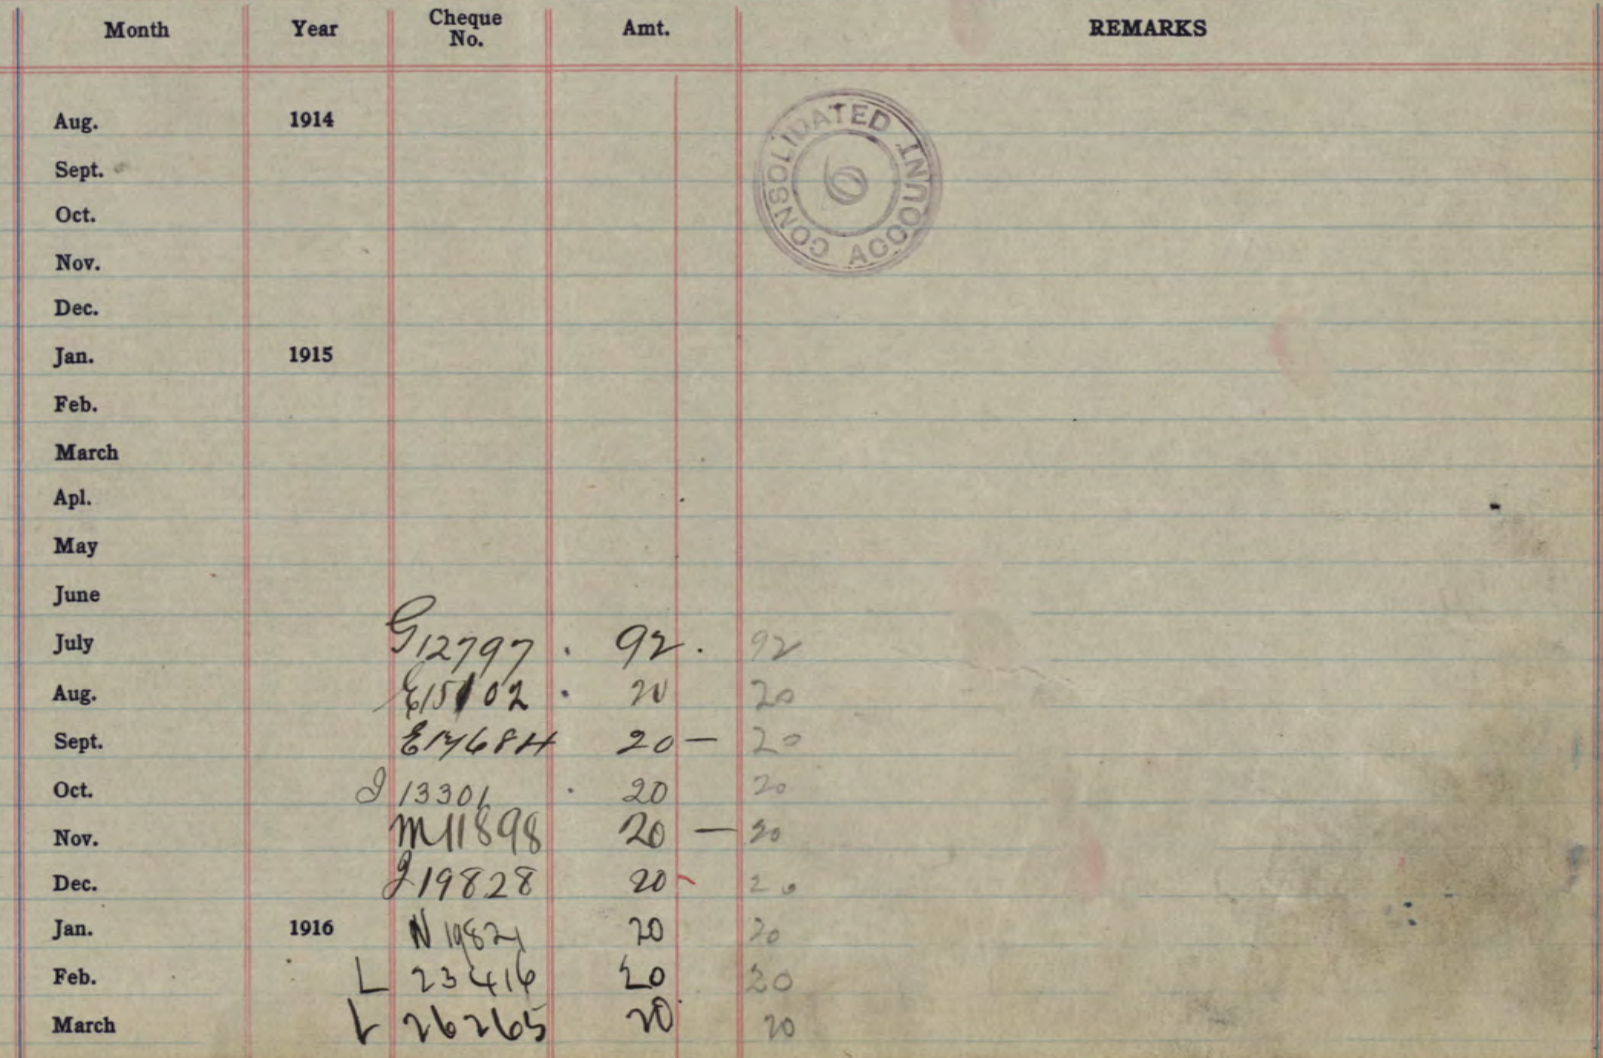 Month Year Cheque No. Amt. REMARKS
Aug. 1914
CONSOLIDATED ACCOUNT
Sept.
Oct.
Nov.
Dec.
Jan. 1915
Feb.
March
Apl.
May
June
July G12797 . 92. 92
Aug. E15102 . 20 20
Sept. 20 — 20
Oct. J 13301 . 20 20
Nov. M11898 20 — 20
Dec. J19828 20 20
Jan. 1916 N 19821 20 20
Feb. L 23416 20 20
March L 26265 20 20